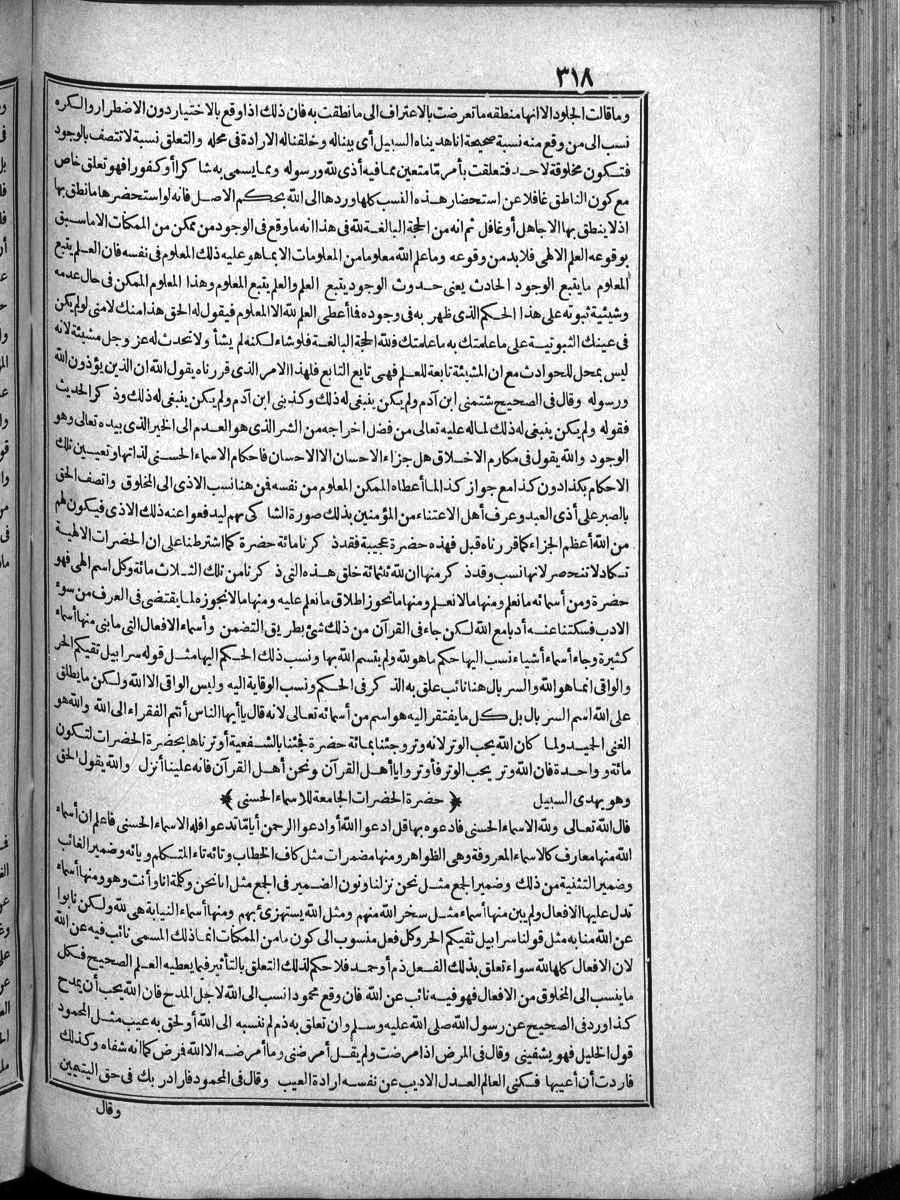 ٣١٨
وما قالت الجلود الا انها منطقه ما تعرضت بالاعتراف الى ما نطقت به فان ذلك اذا وقع بالاختيار دون الاضطرار والكره
نسب الى من وقع منه نسبة صحيحة انا هديناه السبيل أى بيناله وخلقنا له الارادة فى محله والتعلق نسبة لا تتصف بالوجود
فتكون مخلوقة لاحد فتعلقت بأمر مّا متعين مما فيه أذى لله ورسوله ومما يسمى به شاكرا أو كفورا فهو تعلق خاص
مع كون الناطق غافلا عن استحضار هذه النسب كلها وردها الى الله بحكم الاصل فانه لو استحضرها ما نطق بها
اذ لا ينطق بها الا جاهل أو غافل ثم انه من الحجة البالغة لله فى هذا انه ما وقع فى الوجود من ممكن من الممكنات الا ما سبق
بوقوعه العلم الالهى فلا بد من وقوعه وما علم الله معلوما من المعلومات الا بما هو عليه ذلك المعلوم فى نفسه فان العلم يتبع
المعلوم ما يتبع الوجود الحادث يعنى حدوث الوجود يتبع العلم والعلم يتبع المعلوم وهذا المعلوم الممكن فى حال عدمه
وشيئية ثبوته على هذا الحكم الذى ظهر به فى وجوده فما أعطى العلم لله الا المعلوم فيقول له الحق هذا منك لا منى لو لم يكن
فى عينك الثبوتية على ما علمتك به ما علمتك فلله الحجة البالغة فلو شاء لكنه لم يشأ ولا تحدث له عز وجل مشيئة لانه
ليس بمحل للحوادث مع ان المشيئة تابعة للعلم فهى تابع التابع فلهذا الامر الذى قررناه يقول الله ان الذين يؤذون الله
ورسوله وقال فى الصحيح شتمنى ابن آدم ولم يكن ينبغى له ذلك وكذبنى ابن آدم ولم يكن ينبغى له ذلك وذكر الحديث
فقوله ولم يكن ينبغى له ذلك لما له عليه تعالى من فضل اخراجه من الشر الذى هو العدم الى الخير الذى بيده تعالى وهو
الوجود والله يقول فى مكارم الاخلاق هل جزاء الاحسان الا الاحسان فاحكام الاسماء الحسنى لذاتها وتعيين تلك
الاحكام بكذا دون كذا مع جواز كذا لما أعطاه الممكن المعلوم من نفسه فمن هنا نسب الاذى الى المخلوق واتصف الحق
بالصبر على أذى العبد وعرف أهل الاعتناء من المؤمنين بذلك صورة الشاكى بهم ليدفعوا عنه ذلك الاذى فيكون لهم
من الله أعظم الجزاء كما قررناه قبل فهذه حضرة عجيبة فقد ذكرنا مائة حضرة كما اشترطنا على ان الحضرات الالهية
تكاد لا تنحصر لانها نسب وقد ذكر منها ان لله ثلثمائة خلق هذه التى ذكرنا من تلك الثلاث مائة وكل اسم الهى فهو
حضرة ومن أسمائه ما نعلم ومنها ما لا نعلم ومنها ما نجوز اطلاق ما نعلم عليه ومنها ما لا نجوزه لما يقتضى فى العرف من سوء
الادب فسكتنا عنه أدبا مع الله لكن جاء فى القرآن من ذلك شئ بطريق التضمن وأسماء الافعال التى ما بنى منها أسماء
كثيرة وجاء أسماء أشياء نسب اليها حكم ما هو لله ولم يتسم الله بها ونسب ذلك الحكم اليها مثل قوله سرابيل تقيكم الحر
والواقى انما هو الله والسربال هنا نائب علق به الذكر فى الحكم ونسب الوقاية اليه وليس الواقى الا الله ولكن ما يطلق
على الله اسم السربال بل كل ما يفتقر اليه هو اسم من أسمائه تعالى لانه قال يا أيها الناس أنتم الفقراء الى الله والله هو
الغنى الحميد ولما كان الله يحب الوتر لانه وتر وجئنا بمائة حضرة فجئنا بالشفعية أوترناها بحضرة الحضرات لتكون
مائة وواحدة فان الله وتر يحب الوتر فأوتروا يا أهل القرآن ونحن أهل القرآن فانه علينا أنزل والله يقول الحق
وهو يهدى السبيل ﴿ حضرة الحضرات الجامعة للاسماء الحسنى ﴾
قال الله تعالى ولله الاسماء الحسنى فادعوه بها قل ادعوا الله أو ادعوا الرحمن أياما تدعوا فله الاسماء الحسنى فاعلم ان أسماء
الله منها معارف كالاسماء المعروفة وهى الظواهر ومنها مضمرات مثل كاف الخطاب وتائه تاء المتكلم ويائه وضمير الغائب
وضمير التثنية من ذلك وضمير الجمع مثل نحن نزلنا ونون الضمير فى الجمع مثل انا نحن وكلمة انا وأنت وهو ومنها أسماء
تدل عليها الافعال ولم يبن منها أسماء مثل سخر الله منهم ومثل الله يستهزئ بهم ومنها أسماء النيابة هى لله ولكن نابوا
عن الله منابه مثل قولنا سرابيل تقيكم الحر وكل فعل منسوب الى كون ما من الممكنات انما ذلك المسمى نائب فيه عن الله
لان الافعال كلها لله سواء تعلق بذلك الفعل ذم أو حمد فلا حكم لذلك التعلق بالتأثير فيما يعطيه العلم الصحيح فكل
ما ينسب الى المخلوق من الافعال فهو فيه نائب عن الله فان وقع محمودا نسب الى الله لاجل المدح فان الله يحب أن يمدح
كذا ورد فى الصحيح عن رسول الله صلى الله عليه وسلم وان تعلق به ذم لم ننسبه الى الله أو لحق به عيب مثل المحمود
قول الخليل فهو يشفينى وقال فى المرض اذا مرضت ولم يقل أمرضنى وما أمرضه الا الله فمرض كما انه شفاه وكذلك
فاردت أن أعيبها فكنى العالم العدل الاديب عن نفسه ارادة العيب وقال فى المحمود فاراد ربك فى حق اليتيمين
وقال